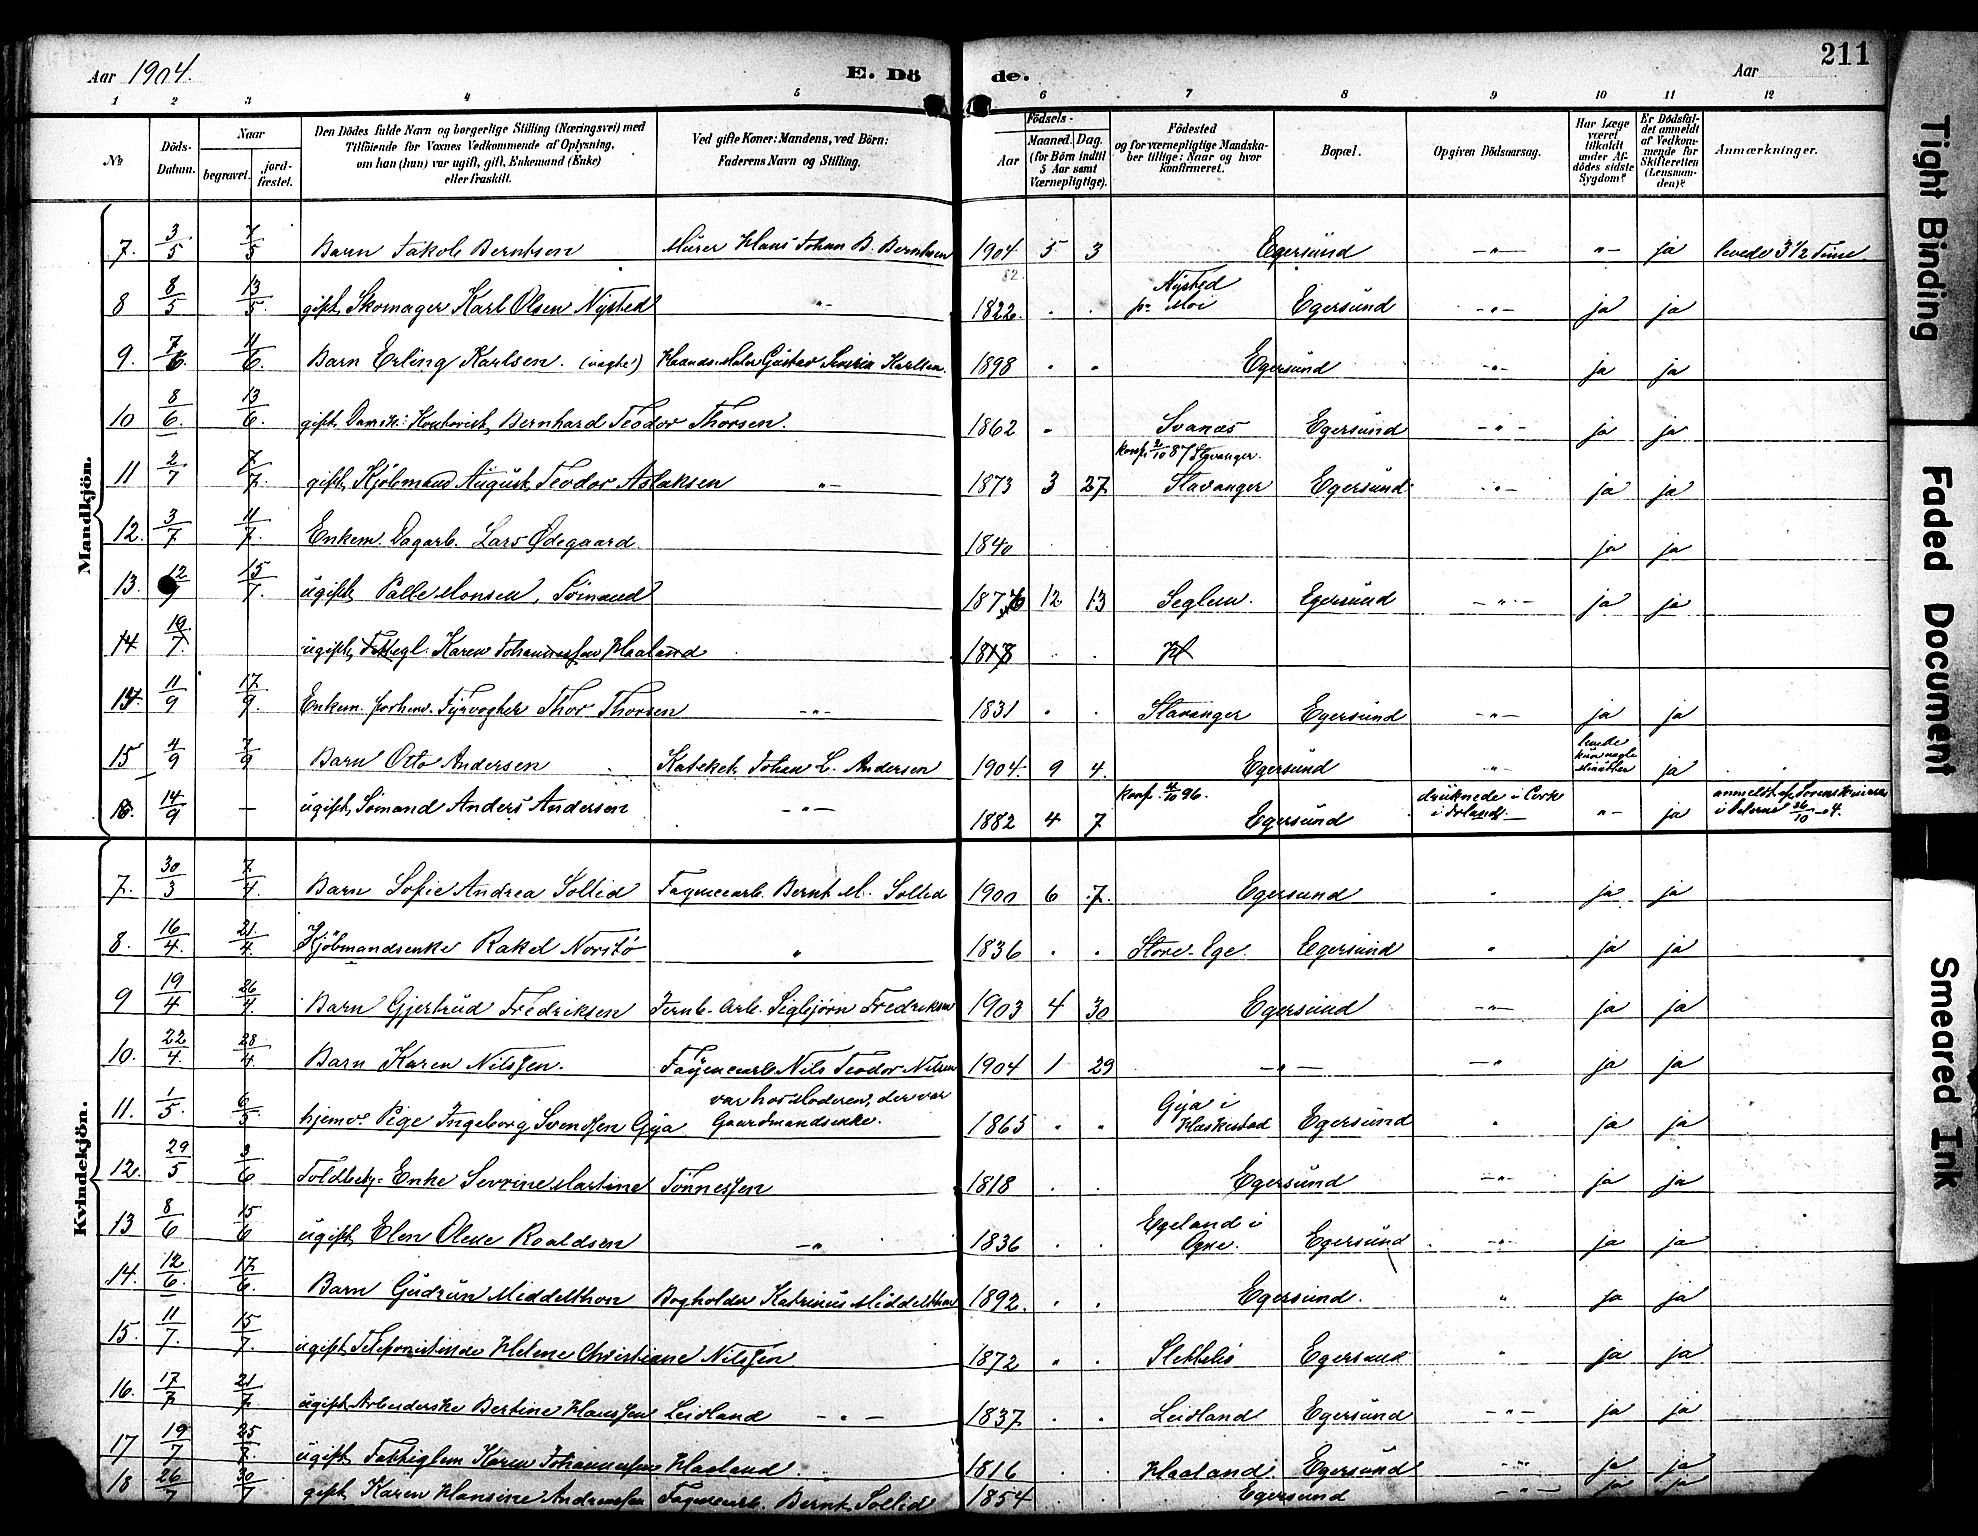 Aar 1904. E. Dö de. Aar 211
1 2 3 4 5 6 7 8 9 10 11 12
No
Döds-Datum.
Naar
begravet.
jord-fæstet.
Den Dödes fulde Navn og borgerlige Stilling (Næringsvei) med
Tilföiende for Voxnes Vedkommende af Oplysning,
om han (hun) var ugift, gift, Enkemand (Enke)
eller fraskilt.
Ved gifte Koner: Mandens, ved Börn:
Faderens Navn og Stilling.
Födsels-
Aar
Maaned. Dag.
(for Börn indtil
5 Aar samt
Værnepligtige).
Födested
og for værnepligtige Mandska-
ber tillige: Naar og hvor
konfirmeret.
Bopæl.
Opgiven Dödsaarsag.
Har Læge
været
tilkaldt
under Af-
dödes sidste
Sygdom?
Er Dödsfal-
det anmeldt
af Vedkom-
mende for
Skifteretten
(Lensman-
den)?
Anmærkninger.
Mandkjön.
7. 3/5 7/5 Barn Jakob Berntsen Murer Hans Johan B. Berntsen 1904 5 3 Egersund -"- "- ja levede 3 1/2 Time.
82.
8 8/5 13/5. gift, Skomager Karl Olsen Nysted -"- 1822. Nysted pr Moi Egersund -"- ja ja
9. 7/6. 11/6. Barn Erling Karlsen. Gustav Severin Karlsen. 1898 " " Egersund -"- ja ja
10 8/6. 13/6. gift, Bernhard Teodor Thorsen. 1862 " Svanæs Egersund -"- ja ja
konf. 87 Stavanger.
11 2/7 7/7. gift, Kjöbmand August Teodor Aslaksen -"- 1873 3 27 Stavanger Egersund -"- ja ja
12. 3/7 11/7. Enkem. Dagarb. Lars Ødegaard. 1840 ja ja
13. 12/7 15/7. ugift, Palle Monsen, Sömand 1876 12 13 Seglem. Egersund -"- ja ja
14 19/7. ugift, Fattegl. Karen Johannessen Haaland 1818 H
14. 11/9 17/9. Enkem. forhenv. Fyrvogter Thor Thorsen -"- 1831 " Stavanger Egersund -"- ja ja
15 4/9 7/9 Barn Otto Andersen Kateket, Johan L. Andersen 1904. 9 4. Egersund " levede kun nogle Minutter ja
16. 14/9 — ugift, Sömand Anders Andersen -"- 1882 4 7 konf. 4/10 96. Egersund druknede i Cork i Irland. "- ja
Kvindekjön.
7. 30/3 7/4. Barn Sofie Andrea Sollid Fayencearb. Bernt M. Sollid 1900 6 7. Egersund " ja ja
8. 16/4. 21/4. Kjöbmandsenke Rakel Norstö " 1836 Store-Ege. Egersund " ja ja
9 19/4 26/4. Barn Gjertrud Fredriksen Jernb. Arb. Sigbjörn Fredriksen 1903 4 30 Egersund -"- ja ja
10. 22/4. 28/4. Barn Karen Nilssen. Fayencearb Nils Teodor Nilsen 1904 1 29 -"- -"- ja ja
11. 1/5. 6/5 hjemv. Pige Ingeborg Svendsen Gya var hos Moderen, der var Gaardmandsenke. 1865 " " Gya i Haskestad Egersund " ja ja
12. 29/5 3/6 Toldbetj. Enke Sevrine Martine Tönnessen 1818 Egersund -"- ja ja
13 8/6 15/6 ugift, Elen Olene Roaldsen -"- 1836 Egeland i Ogne. Egersund -"- ja ja
14. 12/6. 17/6. Barn Gudrun Middelthon Bogholder Katrinus Middelthon 1892. Egersund. " ja ja
15. 11/7. 15/7. ugift Telefonistinde Helene Christiane Nilssen 1872 " Slettebö Egersund " ja ja
16. 17/7 21/7 ugift Arbeiderske Bertine Hanssen Leidland -"- 1837. Leidland Egersund -"- ja ja
17 19/7 25/7. ugift, Fattiglem Karen Johannessen Haaland. 1816 Haaland Egersund -"- ja ja
18 26/7 30/7 gift, Karen Hansine Andreassen Fayencearb. Bernt Sollid 1854 Egersund -"- ja ja
Tight Binding
Faded Document
Smeared Ink